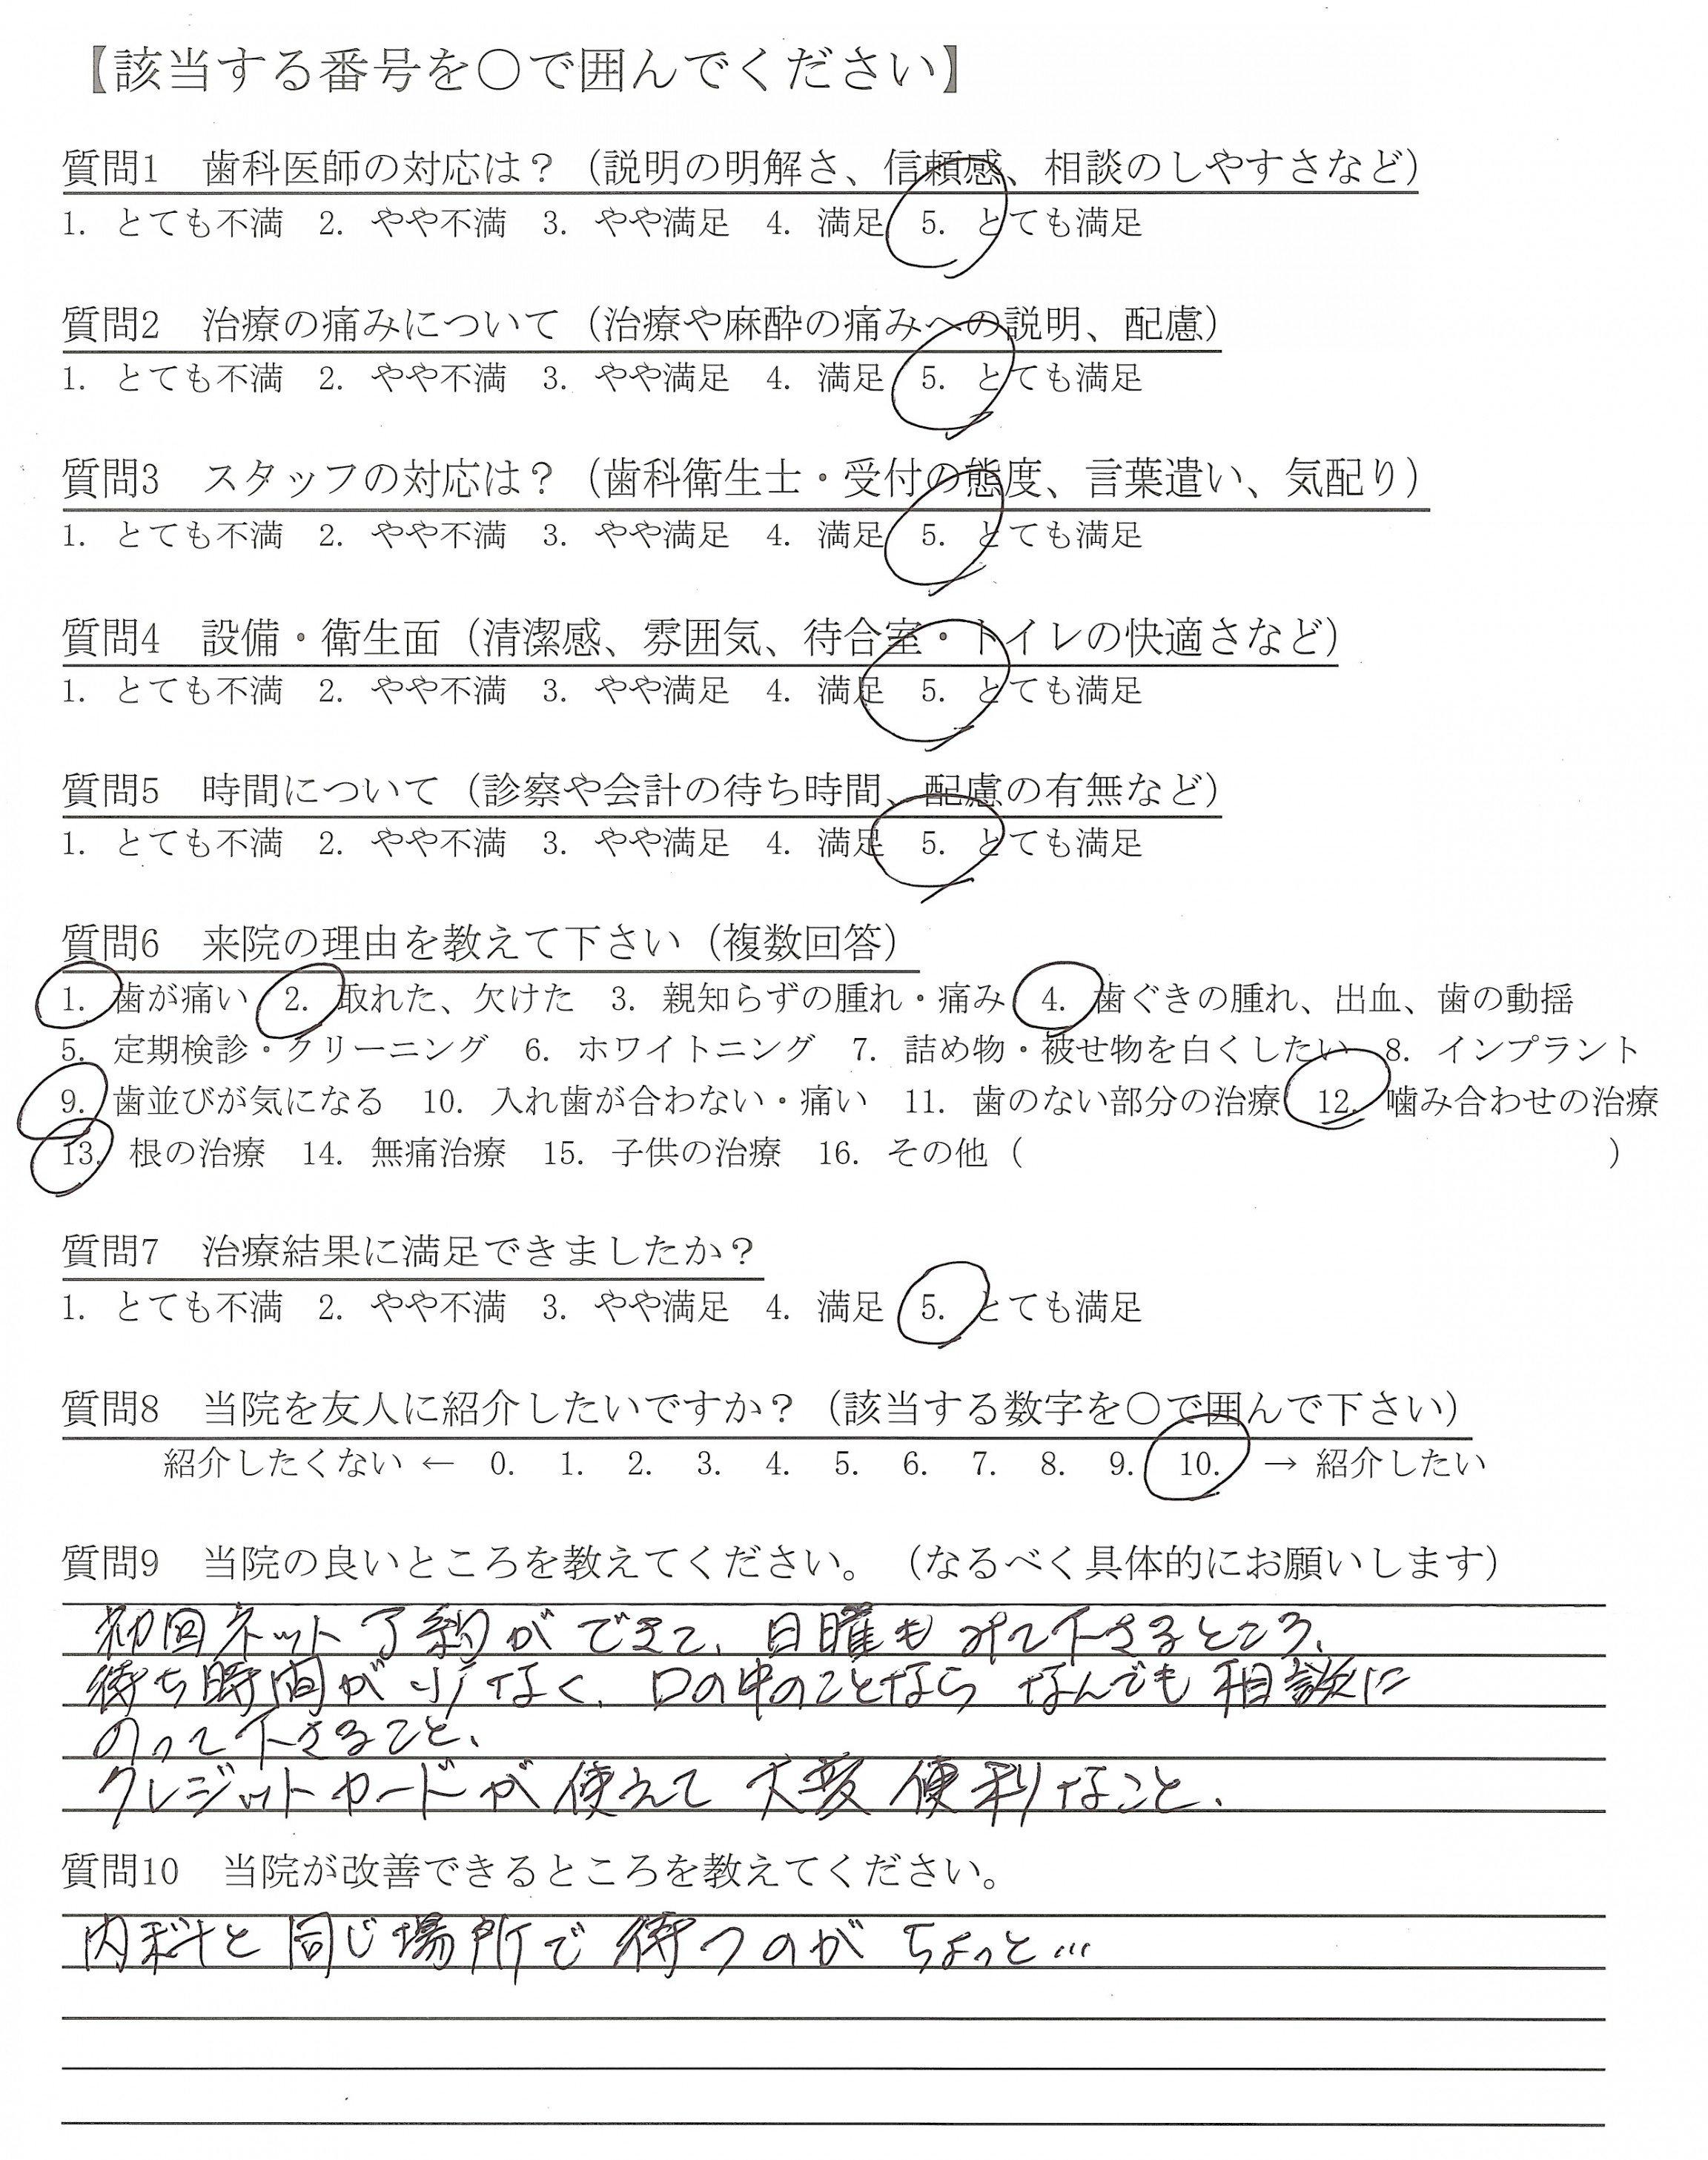 【該当する番号を〇で囲んでください】
質問1　歯科医師の対応は？（説明の明解さ、信頼感、相談のしやすさなど）
1. とても不満　2. やや不満　3. やや満足　4. 満足　5. とても満足
質問2　治療の痛みについて（治療や麻酔の痛みへの説明、配慮）
1. とても不満　2. やや不満　3. やや満足　4. 満足　5. とても満足
質問3　スタッフの対応は？（歯科衛生士・受付の態度、言葉遣い、気配り）
1. とても不満　2. やや不満　3. やや満足　4. 満足　5. とても満足
質問4　設備・衛生面（清潔感、雰囲気、待合室・トイレの快適さなど）
1. とても不満　2. やや不満　3. やや満足　4. 満足　5. とても満足
質問5　時間について（診察や会計の待ち時間、配慮の有無など）
1. とても不満　2. やや不満　3. やや満足　4. 満足　5. とても満足
質問6　来院の理由を教えて下さい（複数回答）
1. 歯が痛い　2. 取れた、欠けた　3. 親知らずの腫れ・痛み　4. 歯ぐきの腫れ、出血、歯の動揺
5. 定期検診・クリーニング　6. ホワイトニング　7. 詰め物・被せ物を白くしたい　8. インプラント
9. 歯並びが気になる　10. 入れ歯が合わない・痛い　11. 歯のない部分の治療　12. 噛み合わせの治療
13. 根の治療　14. 無痛治療　15. 子供の治療　16. その他（　　　　　　　　　　　　　　　　　）
質問7　治療結果に満足できましたか？
1. とても不満　2. やや不満　3. やや満足　4. 満足　5. とても満足
質問8　当院を友人に紹介したいですか？（該当する数字を〇で囲んで下さい）
紹介したくない ← 0. 1. 2. 3. 4. 5. 6. 7. 8. 9. 10. → 紹介したい
質問9　当院の良いところを教えてください。（なるべく具体的にお願いします）
初回ネット予約ができて、日曜もみて下さるところ、
待ち時間が少なく、口の中のことなら なんでも相談に
のって下さること、
クレジットカードが使えて大変便利なこと、
質問10　当院が改善できるところを教えてください。
内科と同じ場所で待つのがちょっと…